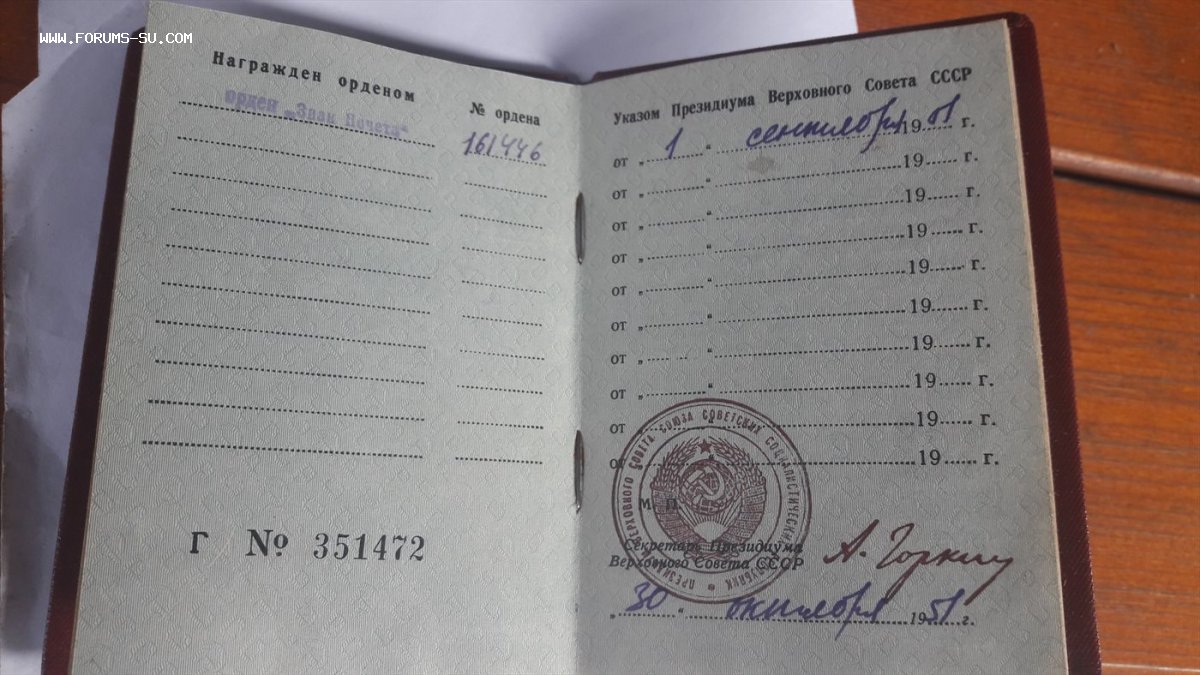 WWW.FORUMS-SU.COM
Награжден орденом
№ ордена
орден „Знак Почета“
161446
Г № 351472
Указом Президиума Верховного Совета СССР
от „ 1 “ сентября 19 51 г.
от „ “ 19 г.
от „ “ 19 г.
от „ “ 19 г.
от „ “ 19 г.
от „ “ 19 г.
от „ “ 19 г.
от „ “ 19 г.
от „ “ 19 г.
от „ “ 19 г.
ПРЕЗИДИУМ ВЕРХОВНОГО СОВЕТА СОЮЗА СОВЕТСКИХ СОЦИАЛИСТИЧЕСКИХ РЕСПУБЛИК
М. П.
Секретарь Президиума
Верховного Совета СССР
А. Горкин
„ 30 “ октября 19 51 г.